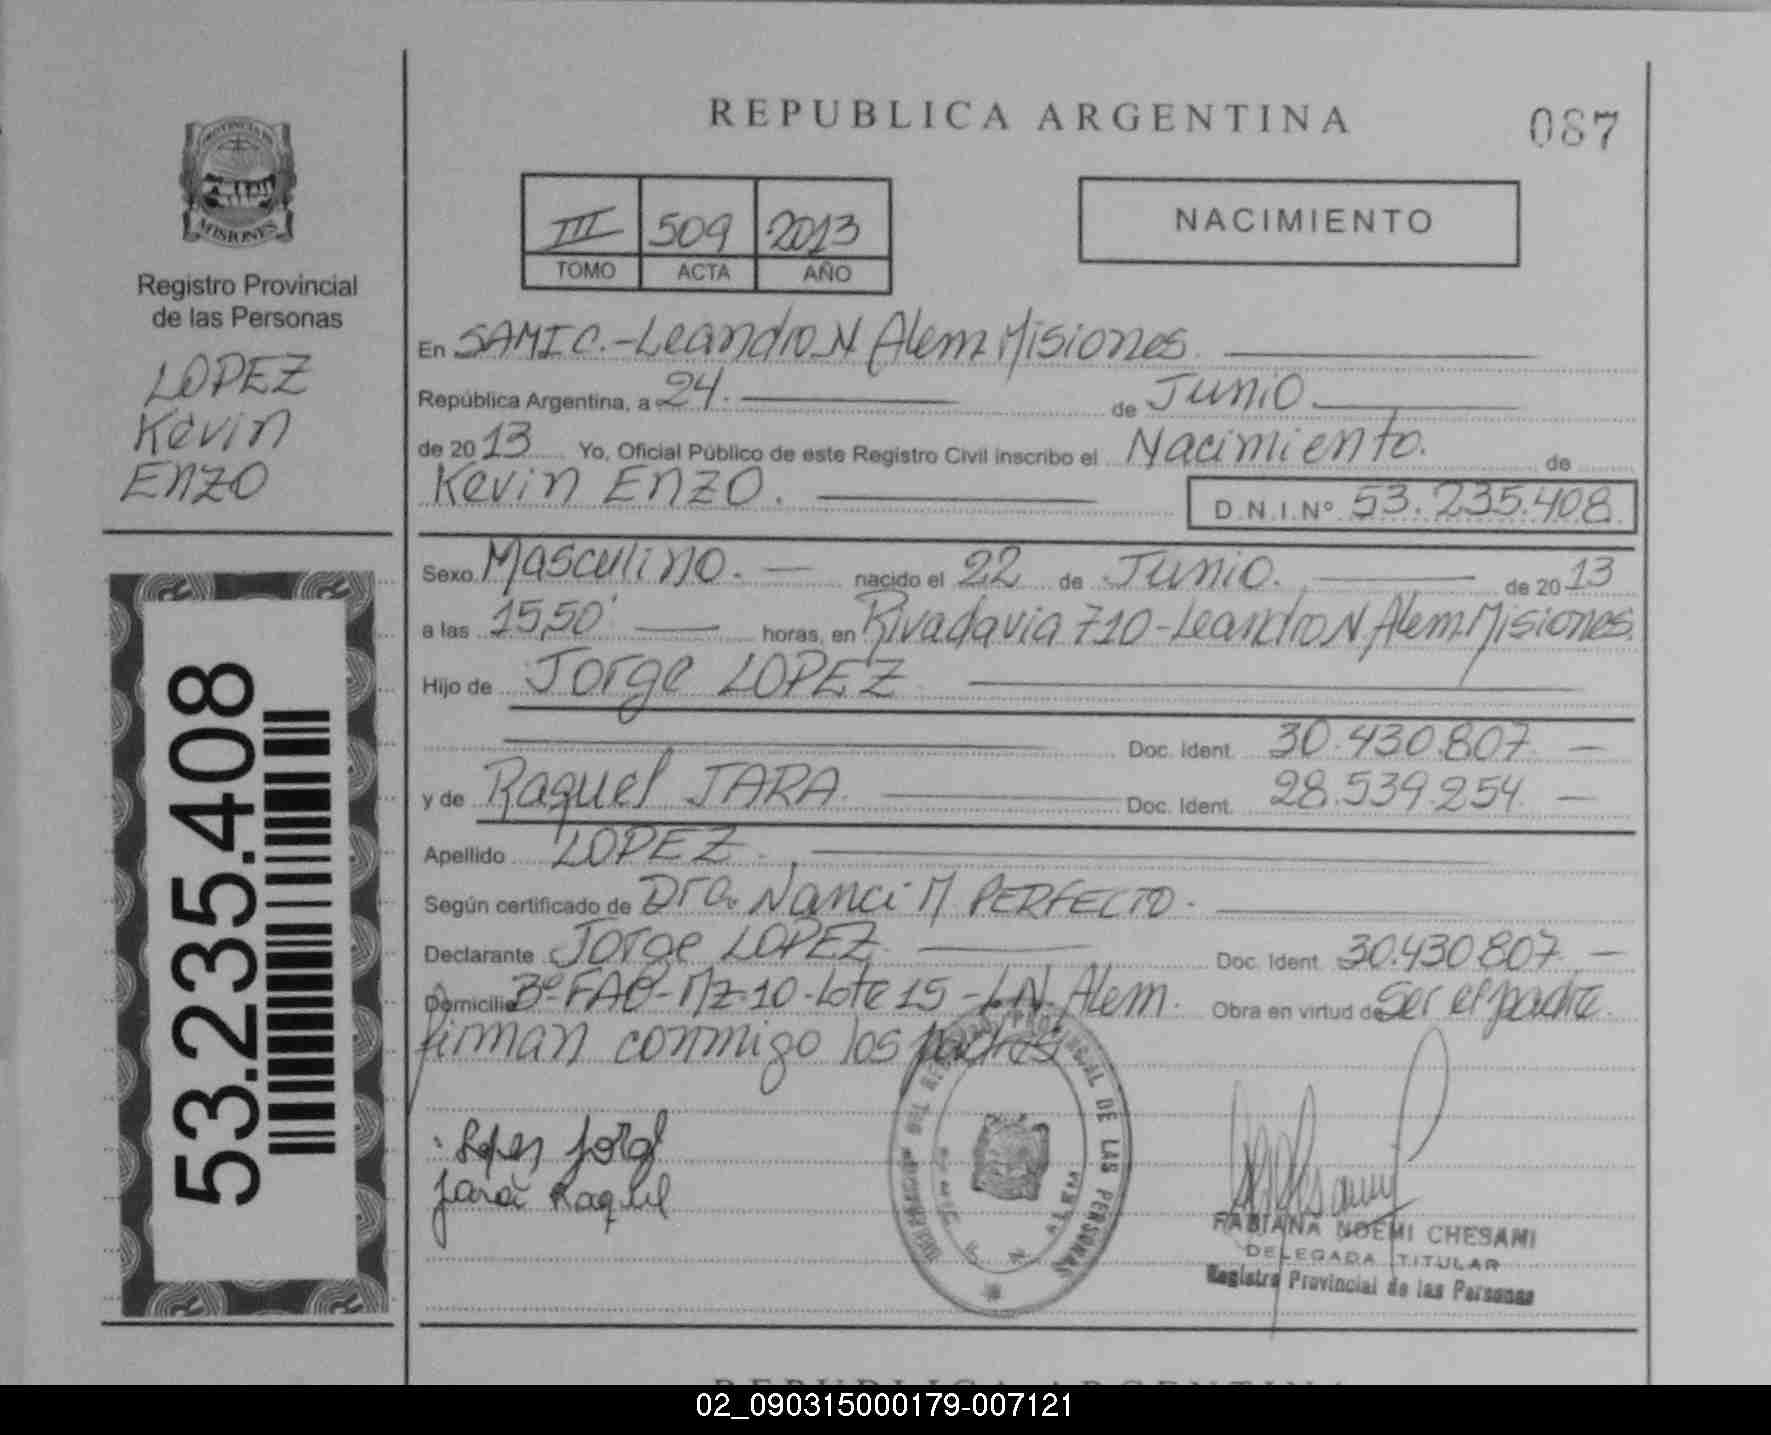 REPUBLICA ARGENTINA
087
PROVINCIA DE
MISIONES
Registro Provincial
de las Personas
LOPEZ
Kevin
ENZO
53.235.408
III 509 2013
TOMO ACTA AÑO
NACIMIENTO
En SAMIC.-Leandro N Alem Misiones.
República Argentina, a 24. de Junio
de 2013 Yo, Oficial Público de este Registro Civil inscribo el Nacimiento. de
Kevin ENZO. D.N.I.Nº 53.235.408
Sexo Masculino. nacido el 22 de Junio. de 2013
a las 15,50' horas, en Rivadavia 710-Leandro N Alem Misiones.
Hijo de Jorge LOPEZ
Doc. Ident. 30.430.807
y de Raquel JARA. Doc. Ident. 28.539.254
Apellido LOPEZ
Según certificado de Dra. Nanci M PERFECTO.
Declarante Jorge LOPEZ Doc. Ident. 30.430.807
Domicilio Bº FAO-Mz-10-Lote 15-L.N. Alem. Obra en virtud de Ser el padre.
firman conmigo los padres
Lopes Jorge
Jara Raquel
DEL REGISTRO PROVINCIAL DE LAS PERSONAS
FABIANA NOEMI CHESAMI
DELEGADA TITULAR
Registro Provincial de las Personas
REPUBLICA ARGENTINA
02_090315000179-007121